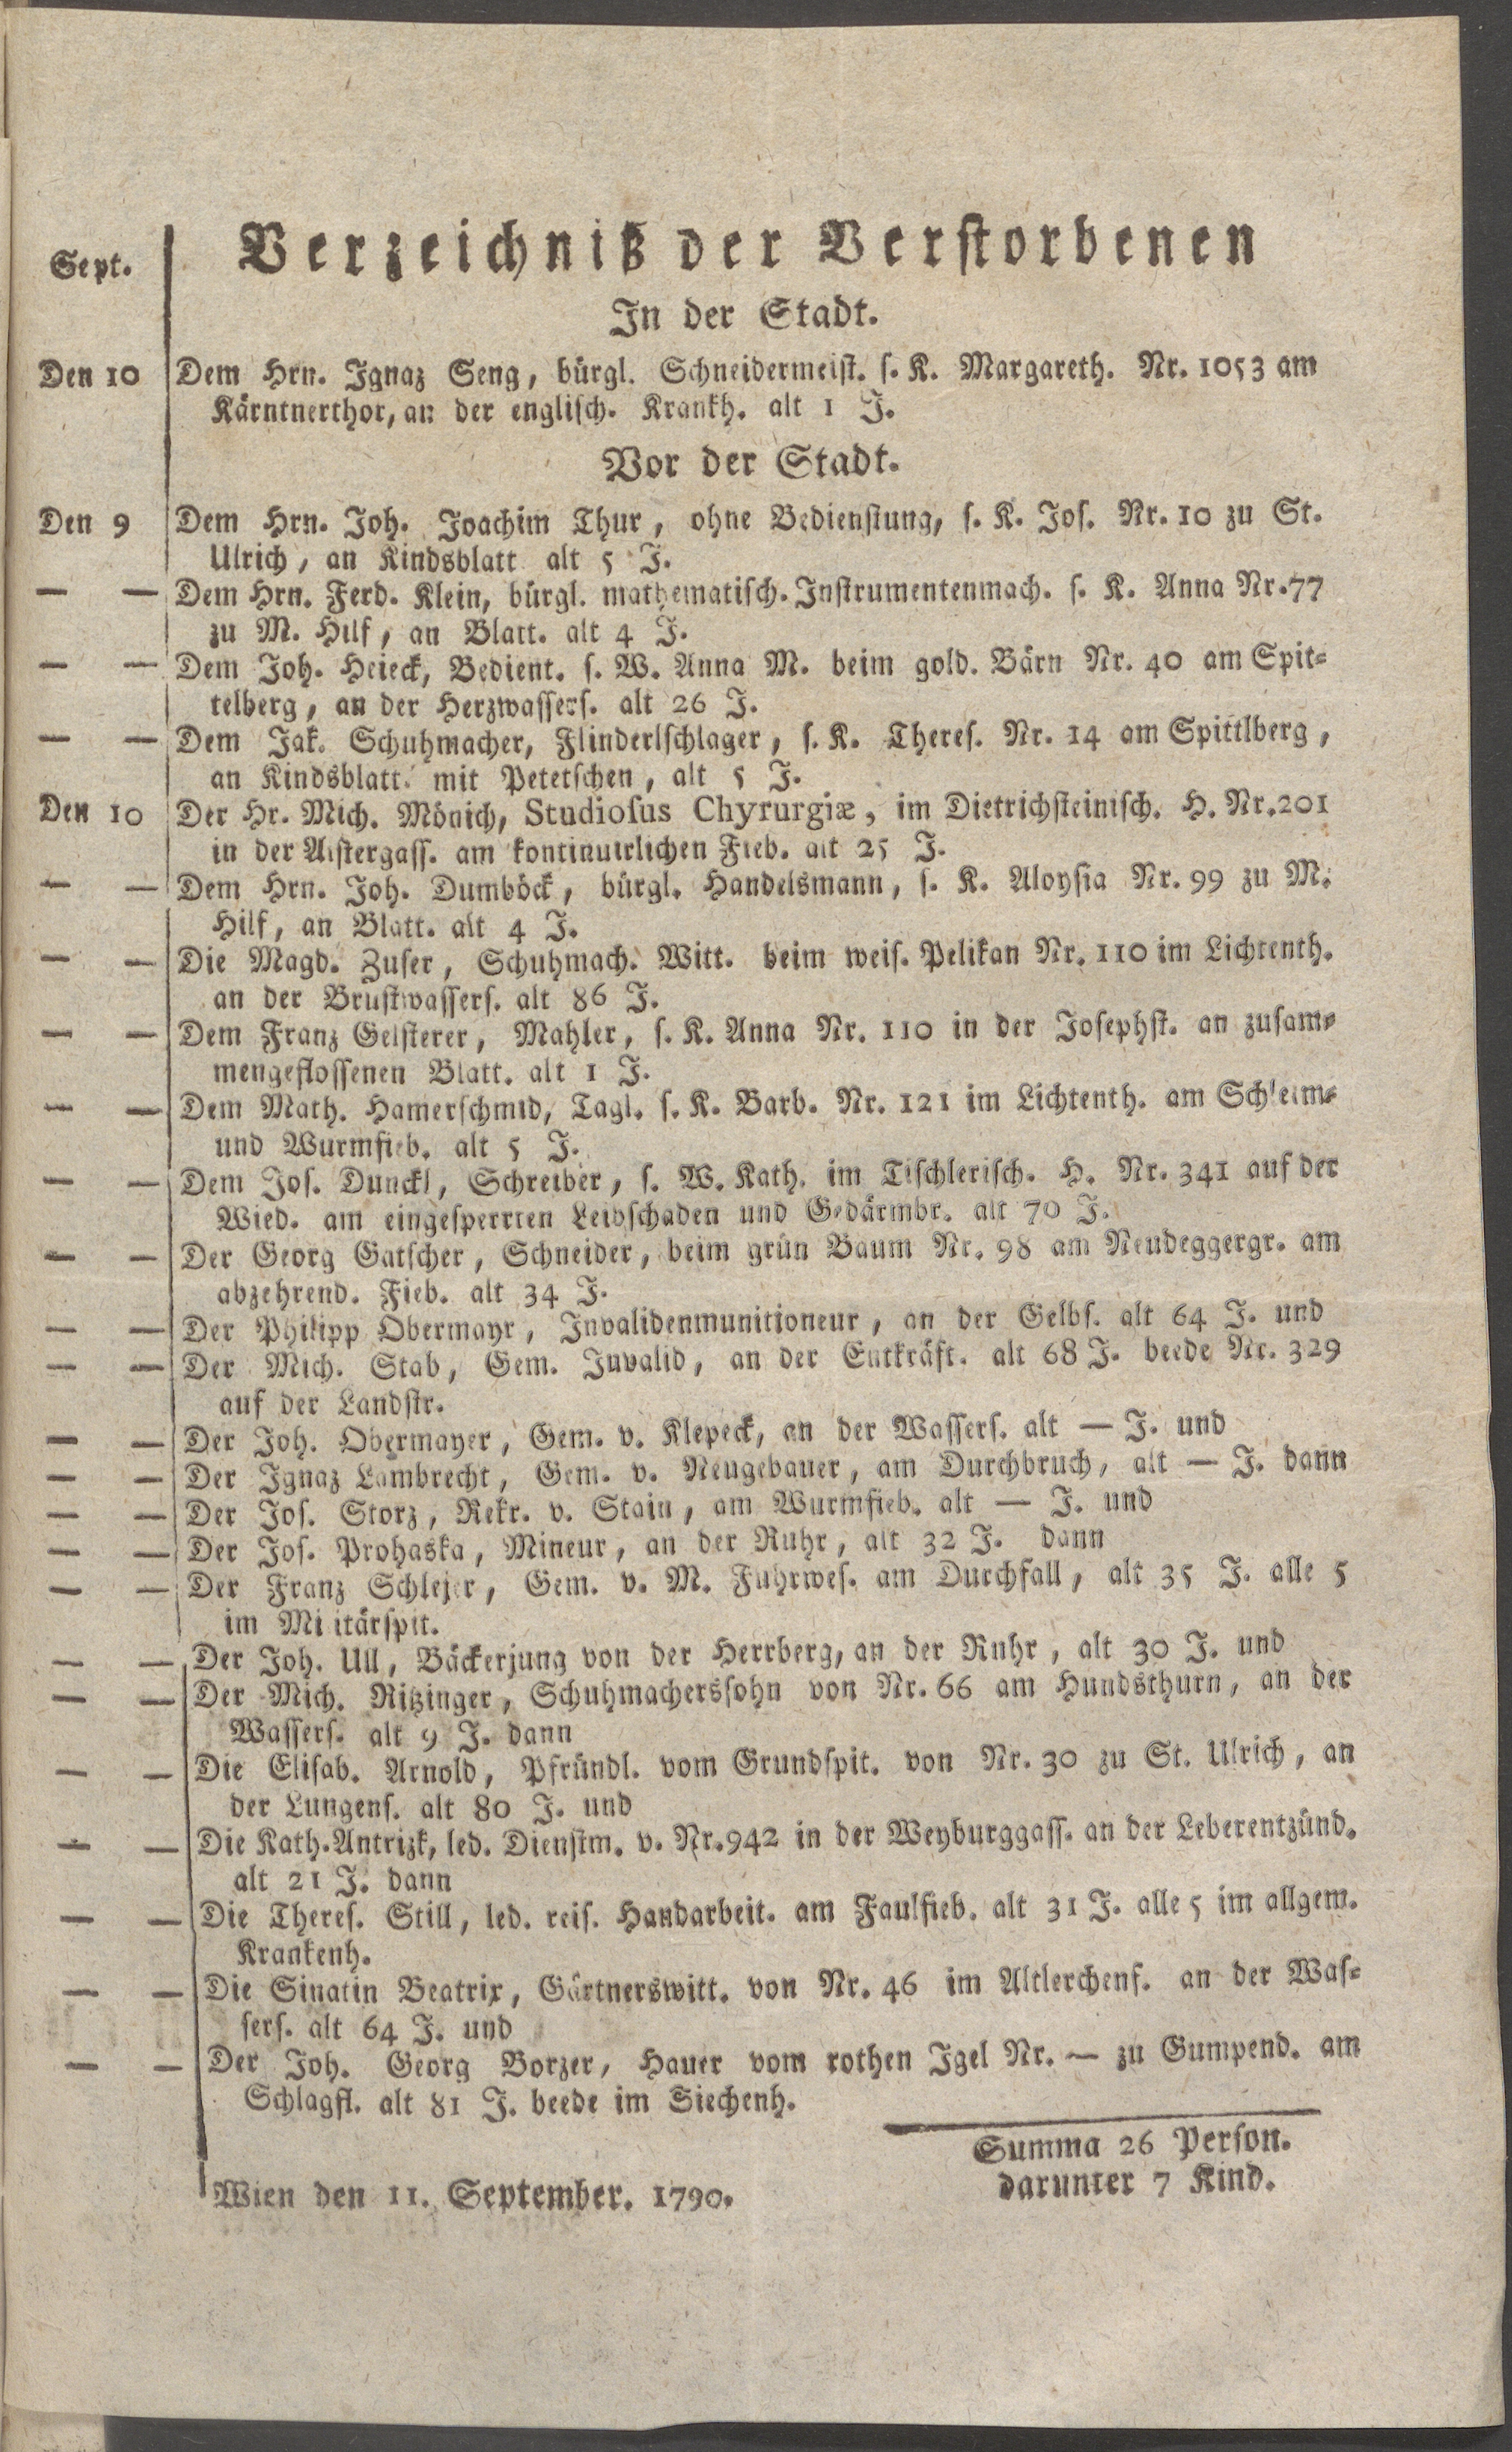 Sept. Verzeichniß der Verstorbenen
In der Stadt.
Den 10 Dem Hrn. Ignaz Seng, bürgl. Schneidermeist. s. K. Margareth. Nr. 1053 am
Kärntnerthor, an der englisch. Krankh. alt 1 J.
Vor der Stadt.
Den 9 Dem Hrn. Joh. Joachim Thur, ohne Bedienstung, s. K. Jos. Nr. 10 zu St.
Ulrich, an Kindsblatt alt 5 J.
— — Dem Hrn. Ferd. Klein, bürgl. mathematisch. Instrumentenmach. s. K. Anna Nr. 77
zu M. Hilf, an Blatt. alt 4 J.
— — Dem Joh. Heieck, Bedient. s. W. Anna M. beim gold. Bärn Nr. 40 am Spit-
telberg, an der Herzwassers. alt 26 J.
— — Dem Jak. Schuhmacher, Flinderlschlager, s. K. Theres. Nr. 14 am Spittlberg,
an Kindsblatt. mit Petetschen, alt 5 J.
Den 10 Der Hr. Mich. Mönich, Studiosus Chyrurgiæ, im Dietrichsteinisch. H. Nr. 201
in der Alstergass. am kontinuirlichen Fieb. alt 25 J.
— — Dem Hrn. Joh. Dumböck, bürgl. Handelsmann, s. K. Aloysia Nr. 99 zu M.
Hilf, an Blatt. alt 4 J.
— — Die Magd. Zuser, Schuhmach. Witt. beim weis. Pelikan Nr. 110 im Lichtenth.
an der Brustwassers. alt 86 J.
— — Dem Franz Geisterer, Mahler, s. K. Anna Nr. 110 in der Josephst. an zusam-
mengeflossenen Blatt. alt 1 J.
— — Dem Math. Hamerschmid, Tagl. s. K. Barb. Nr. 121 im Lichtenth. am Schleim-
und Wurmfieb. alt 5 J.
— — Dem Jos. Dunckl, Schreiber, s. W. Kath. im Tischlerisch. H. Nr. 341 auf der
Wied. am eingesperrten Leibschaden und Gedärmbr. alt 70 J.
— — Der Georg Gatscher, Schneider, beim grün Baum Nr. 98 am Neudeggergr. am
abzehrend. Fieb. alt 34 J.
— — Der Philipp Obermayr, Invalidenmunitioneur, an der Gelbs. alt 64 J. und
— — Der Mich. Stab, Gem. Invalid, an der Entkräft. alt 68 J. beede Nr. 329
auf der Landstr.
— — Der Joh. Obermayer, Gem. v. Klepeck, an der Wassers. alt — J. und
— — Der Ignaz Lambrecht, Gem. v. Neugebauer, am Durchbruch, alt — J. dann
— — Der Jos. Storz, Rekr. v. Stain, am Wurmfieb. alt — J. und
— — Der Jos. Prohaska, Mineur, an der Ruhr, alt 32 J. dann
— — Der Franz Schlejer, Gem. v. M. Fuhrwes. am Durchfall, alt 35 J. alle 5
im Militärspit.
— — Der Joh. Ull, Bäckerjung von der Herrberg, an der Ruhr, alt 30 J. und
— — Der Mich. Ritzinger, Schuhmacherssohn von Nr. 66 am Hundsthurn, an der
Wassers. alt 9 J. dann
— — Die Elisab. Arnold, Pfründl. vom Grundspit. von Nr. 30 zu St. Ulrich, an
der Lungens. alt 80 J. und
— — Die Kath. Antrizk, led. Dienstm. v. Nr. 942 in der Weyburggass. an der Leberentzünd.
alt 21 J. dann
— — Die Theres. Still, led. reis. Handarbeit. am Faulfieb. alt 31 J. alle 5 im allgem.
Krankenh.
— — Die Sinatin Beatrix, Gärtnerswitt. von Nr. 46 im Altlerchenf. an der Was-
sers. alt 64 J. und
— — Der Joh. Georg Borzer, Hauer vom rothen Igel Nr. — zu Gumpend. am
Schlagfl. alt 81 J. beede im Siechenh.
Summa 26 Person.
darunter 7 Kind.
Wien den 11. September. 1790.